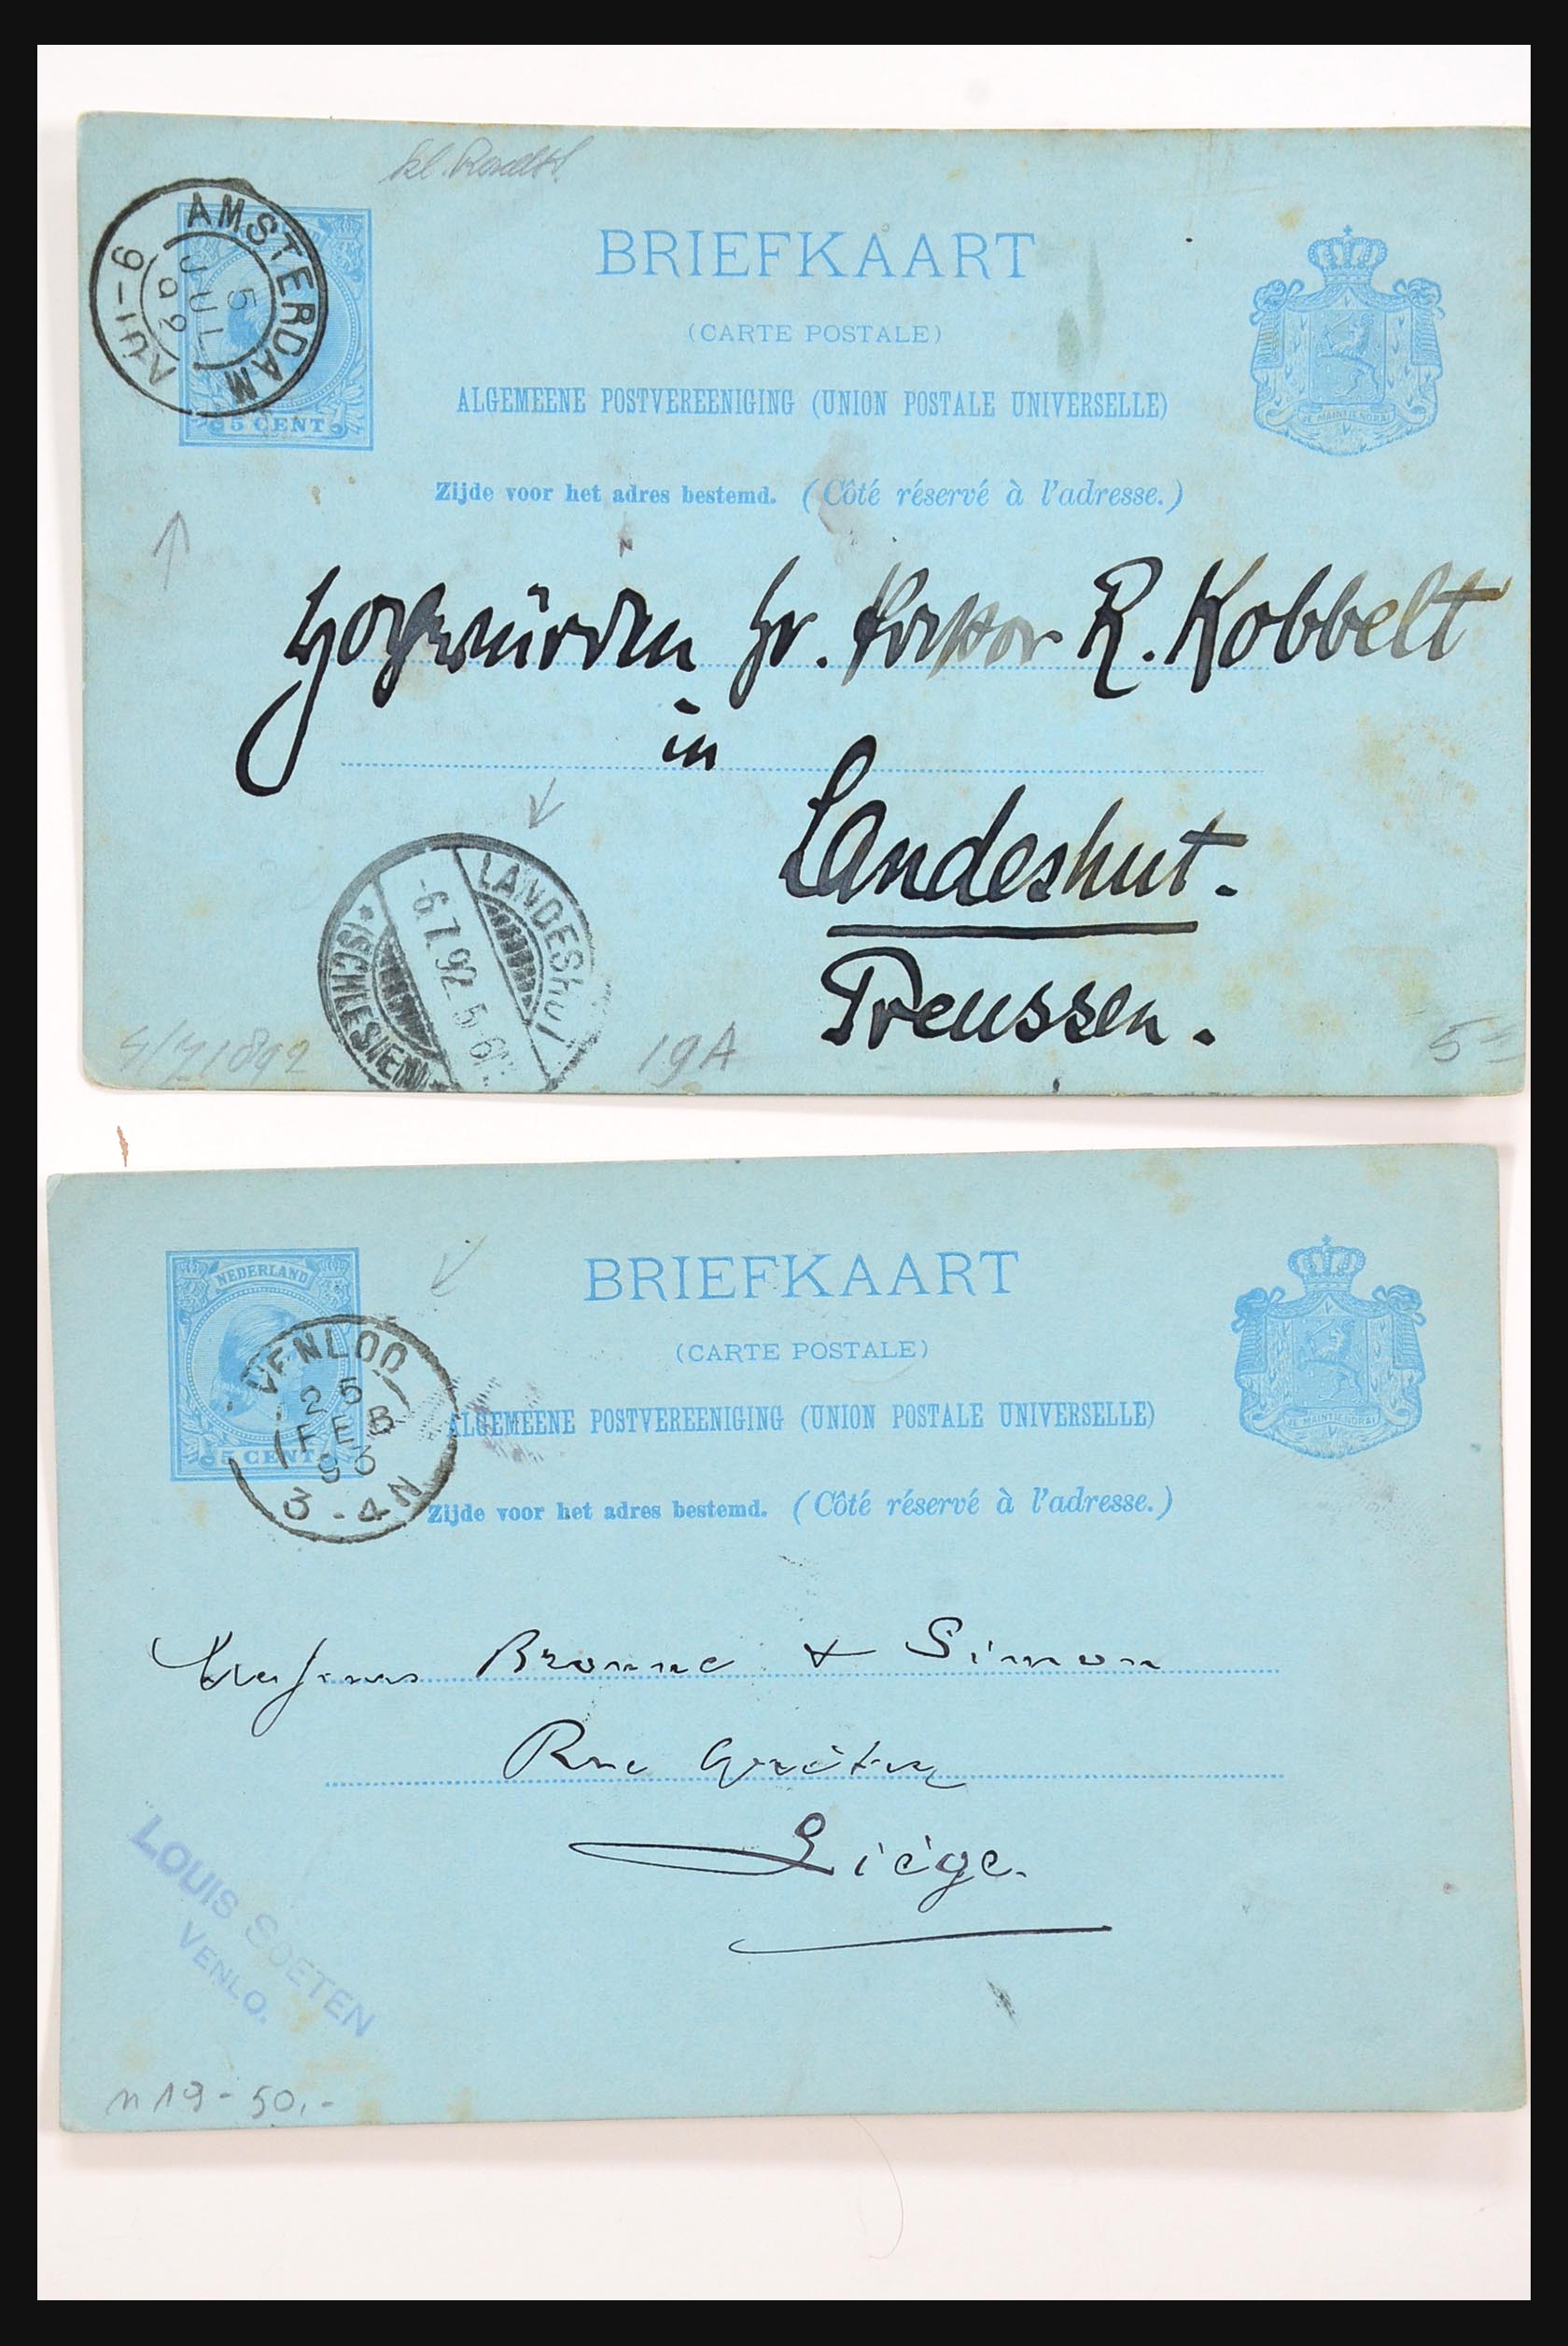 AMSTERDAM
5 JUL 92
9-10V
5 CENT
BRIEFKAART
(CARTE POSTALE)
ALGEMEENE POSTVEREENIGING (UNION POSTALE UNIVERSELLE)
JE MAINTIENDRAI
Zijde voor het adres bestemd. (Côté réservé à l'adresse.)
Hochwürden Hr. Pastor R. Kobbelt
in
Landeshut.
Preussen.
LANDEShuT
-6.7.92. 5-6N.
*(SCHLESIEN)*
19A
NEDERLAND
5 CENT
VENLOO
25
FEB
93
3-4N
BRIEFKAART
(CARTE POSTALE)
ALGEMEENE POSTVEREENIGING (UNION POSTALE UNIVERSELLE)
JE MAINTIENDRAI
Zijde voor het adres bestemd. (Côté réservé à l'adresse.)
Bronne & Simon
Rue Grétry
Liége.
LOUIS SOETEN
VENLO.
n 19 - 50,-